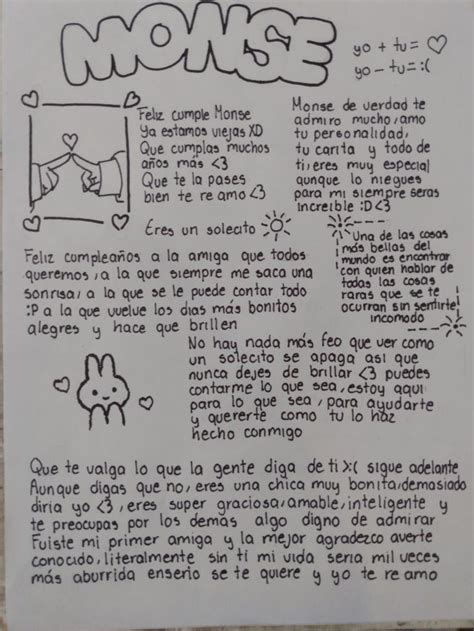 MONSE
yo + tu = ♡
yo - tu = :(
Feliz cumple Monse
Ya estamos viejas XD
Que cumplas muchos
años más <3
Que te la pases
bien te re amo <3
Monse de verdad te
admiro mucho, amo
tu personalidad,
tu carita y todo de
ti, eres muy especial
aunque lo niegues
para mi siempre seras
increible :D <3
Eres un solecito
Una de las cosas
más bellas del
mundo es encontrar
con quien hablar de
todas las cosas
raras que se te
ocurran sin sentirte
incomodo
Feliz cumpleaños a la amiga que todos
queremos, a la que siempre me saca una
sonrisa, a la que se le puede contar todo
:P a la que vuelve los dias más bonitos
alegres y hace que brillen
No hay nada más feo que ver como
un solecito se apaga asi que
nunca dejes de brillar <3 puedes
contarme lo que sea, estoy aqui
para lo que sea, para ayudarte
y quererte como tu lo haz
hecho conmigo
Que te valga lo que la gente diga de ti >:( sigue adelante
Aunque digas que no, eres una chica muy bonita, demasiado
diria yo <3, eres super graciosa, amable, inteligente y
te preocupas por los demás algo digno de admirar
Fuiste mi primer amiga y la mejor agradezco averte
conocido, literalmente sin ti mi vida seria mil veces
más aburrida enserio se te quiere y yo te re amo